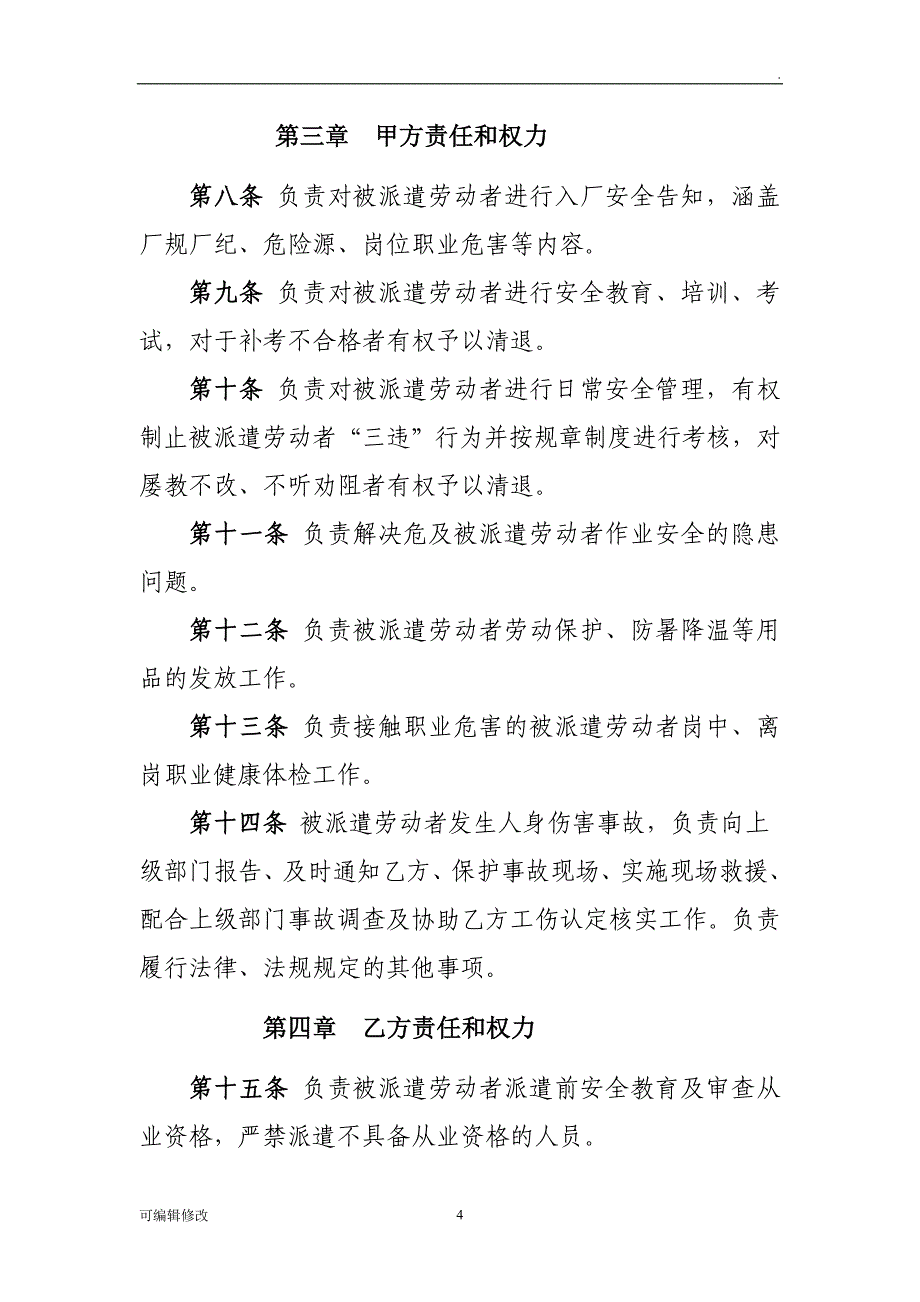 第三章　甲方责任和权力
第八条 负责对被派遣劳动者进行入厂安全告知，涵盖
厂规厂纪、危险源、岗位职业危害等内容。
第九条 负责对被派遣劳动者进行安全教育、培训、考
试，对于补考不合格者有权予以清退。
第十条 负责对被派遣劳动者进行日常安全管理，有权
制止被派遣劳动者“三违”行为并按规章制度进行考核，对
屡教不改、不听劝阻者有权予以清退。
第十一条 负责解决危及被派遣劳动者作业安全的隐患
问题。
第十二条 负责被派遣劳动者劳动保护、防暑降温等用
品的发放工作。
第十三条 负责接触职业危害的被派遣劳动者岗中、离
岗职业健康体检工作。
第十四条 被派遣劳动者发生人身伤害事故，负责向上
级部门报告、及时通知乙方、保护事故现场、实施现场救援、
配合上级部门事故调查及协助乙方工伤认定核实工作。负责
履行法律、法规规定的其他事项。
第四章　乙方责任和权力
第十五条 负责被派遣劳动者派遣前安全教育及审查从
业资格，严禁派遣不具备从业资格的人员。
可编辑修改 4